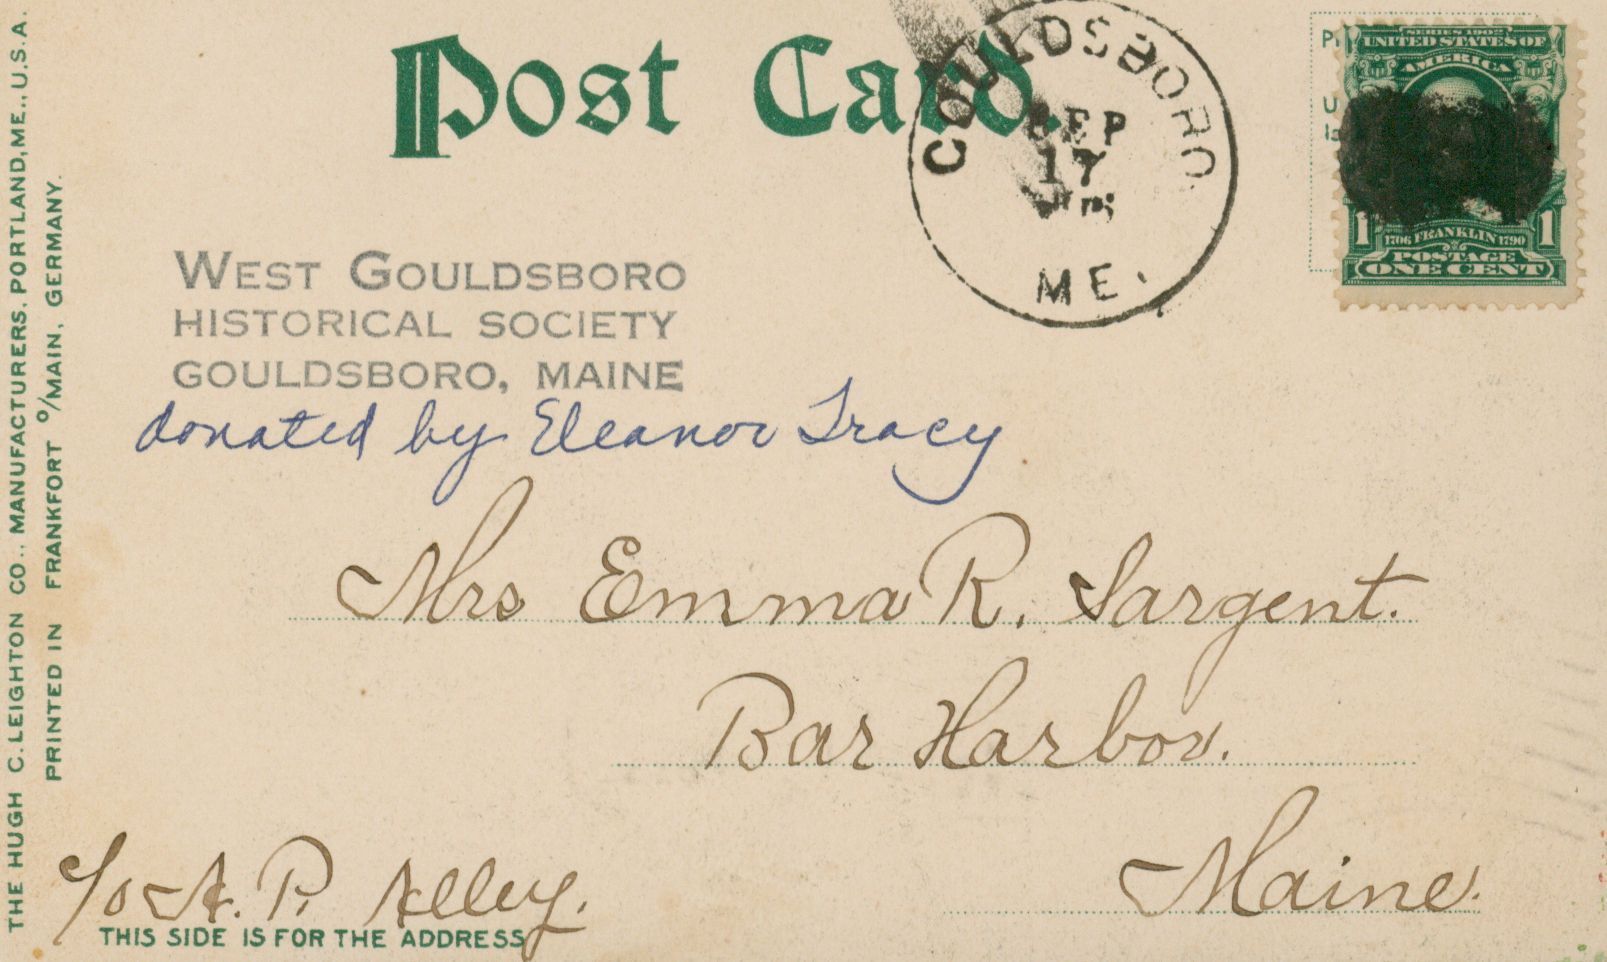 THE HUGH C. LEIGHTON CO., MANUFACTURERS, PORTLAND, ME., U.S.A.
PRINTED IN FRANKFORT O/MAIN, GERMANY.
Post Card.
GOULDSBORO
SEP
17
ME.
SERIES 1902
UNITED STATES OF
AMERICA
1 1706 FRANKLIN 1790 1
POSTAGE
ONE CENT
WEST GOULDSBORO
HISTORICAL SOCIETY
GOULDSBORO, MAINE
donated by Eleanor Tracy
Mrs Emma R. Sargent.
Bar Harbor.
Maine.
c/o A. P. Alley.
THIS SIDE IS FOR THE ADDRESS